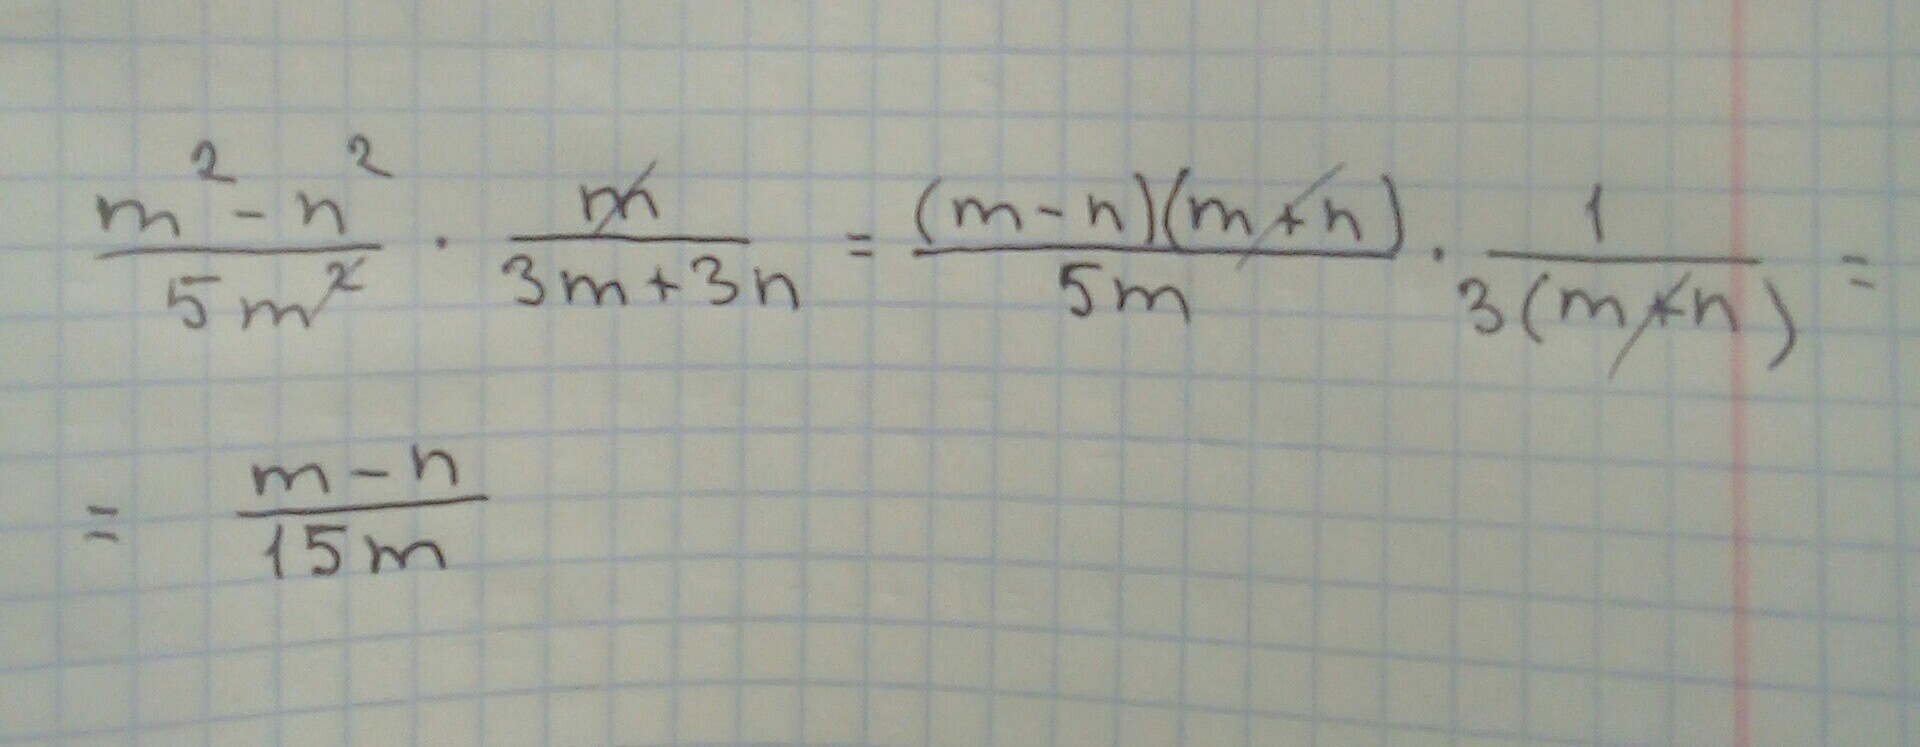 (m² - n²)/(5m²) · m/(3m+3n) = ((m-n)(m+n))/(5m) · 1/(3(m+n)) =
= (m-n)/(15m)